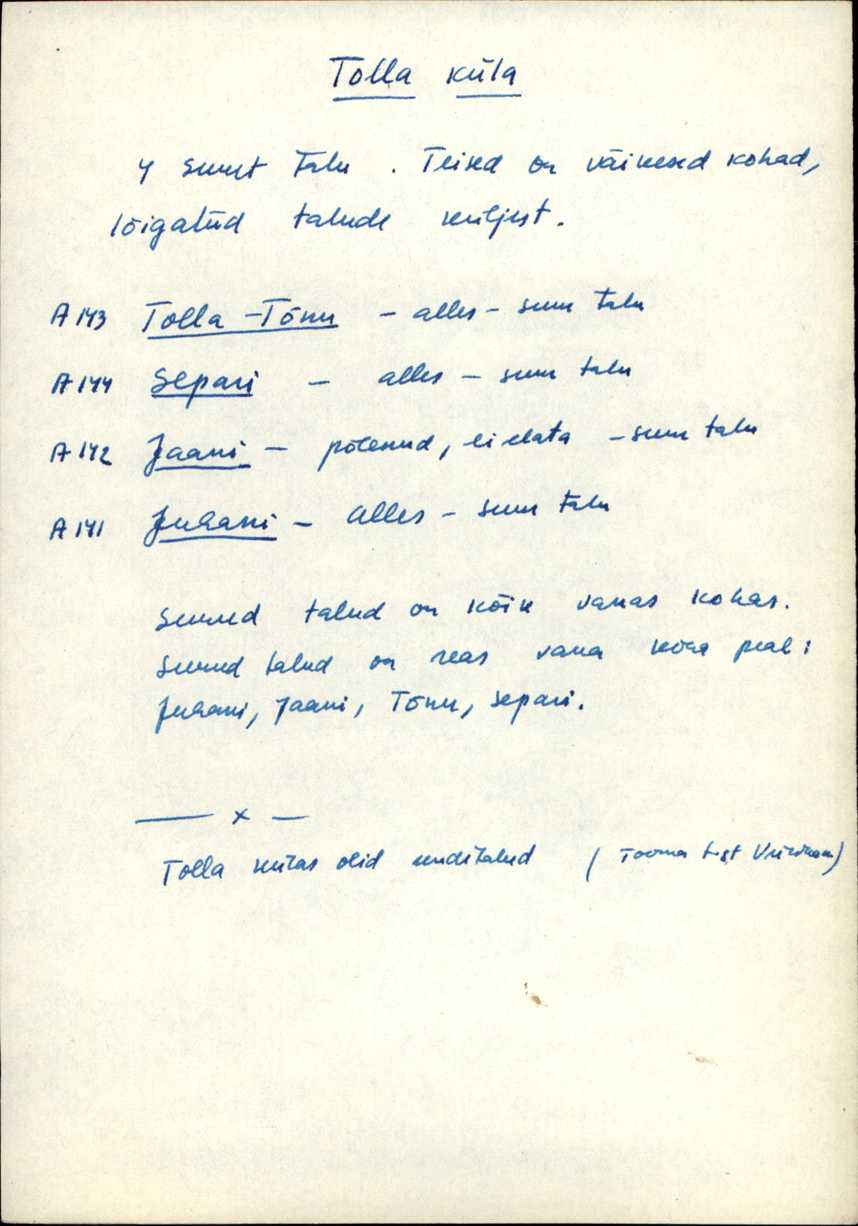 Tolla küla
4 suurt talu. Teised on väikesed kohad,
lõigatud talude küljest.
A 143 Tolla-Tõnu - alles - suur talu
A 144 Separi - alles - suur talu
A 142 Jaani - põlenud, ei elata - suur talu
A 141 Juhani - alles - suur talu
Suured talud on kõik vanas kohas.
Suured talud on reas vana koha peal:
Juhani, Jaani, Tõnu, Separi.
— x —
Tolla külas olid renditalud (Tooma